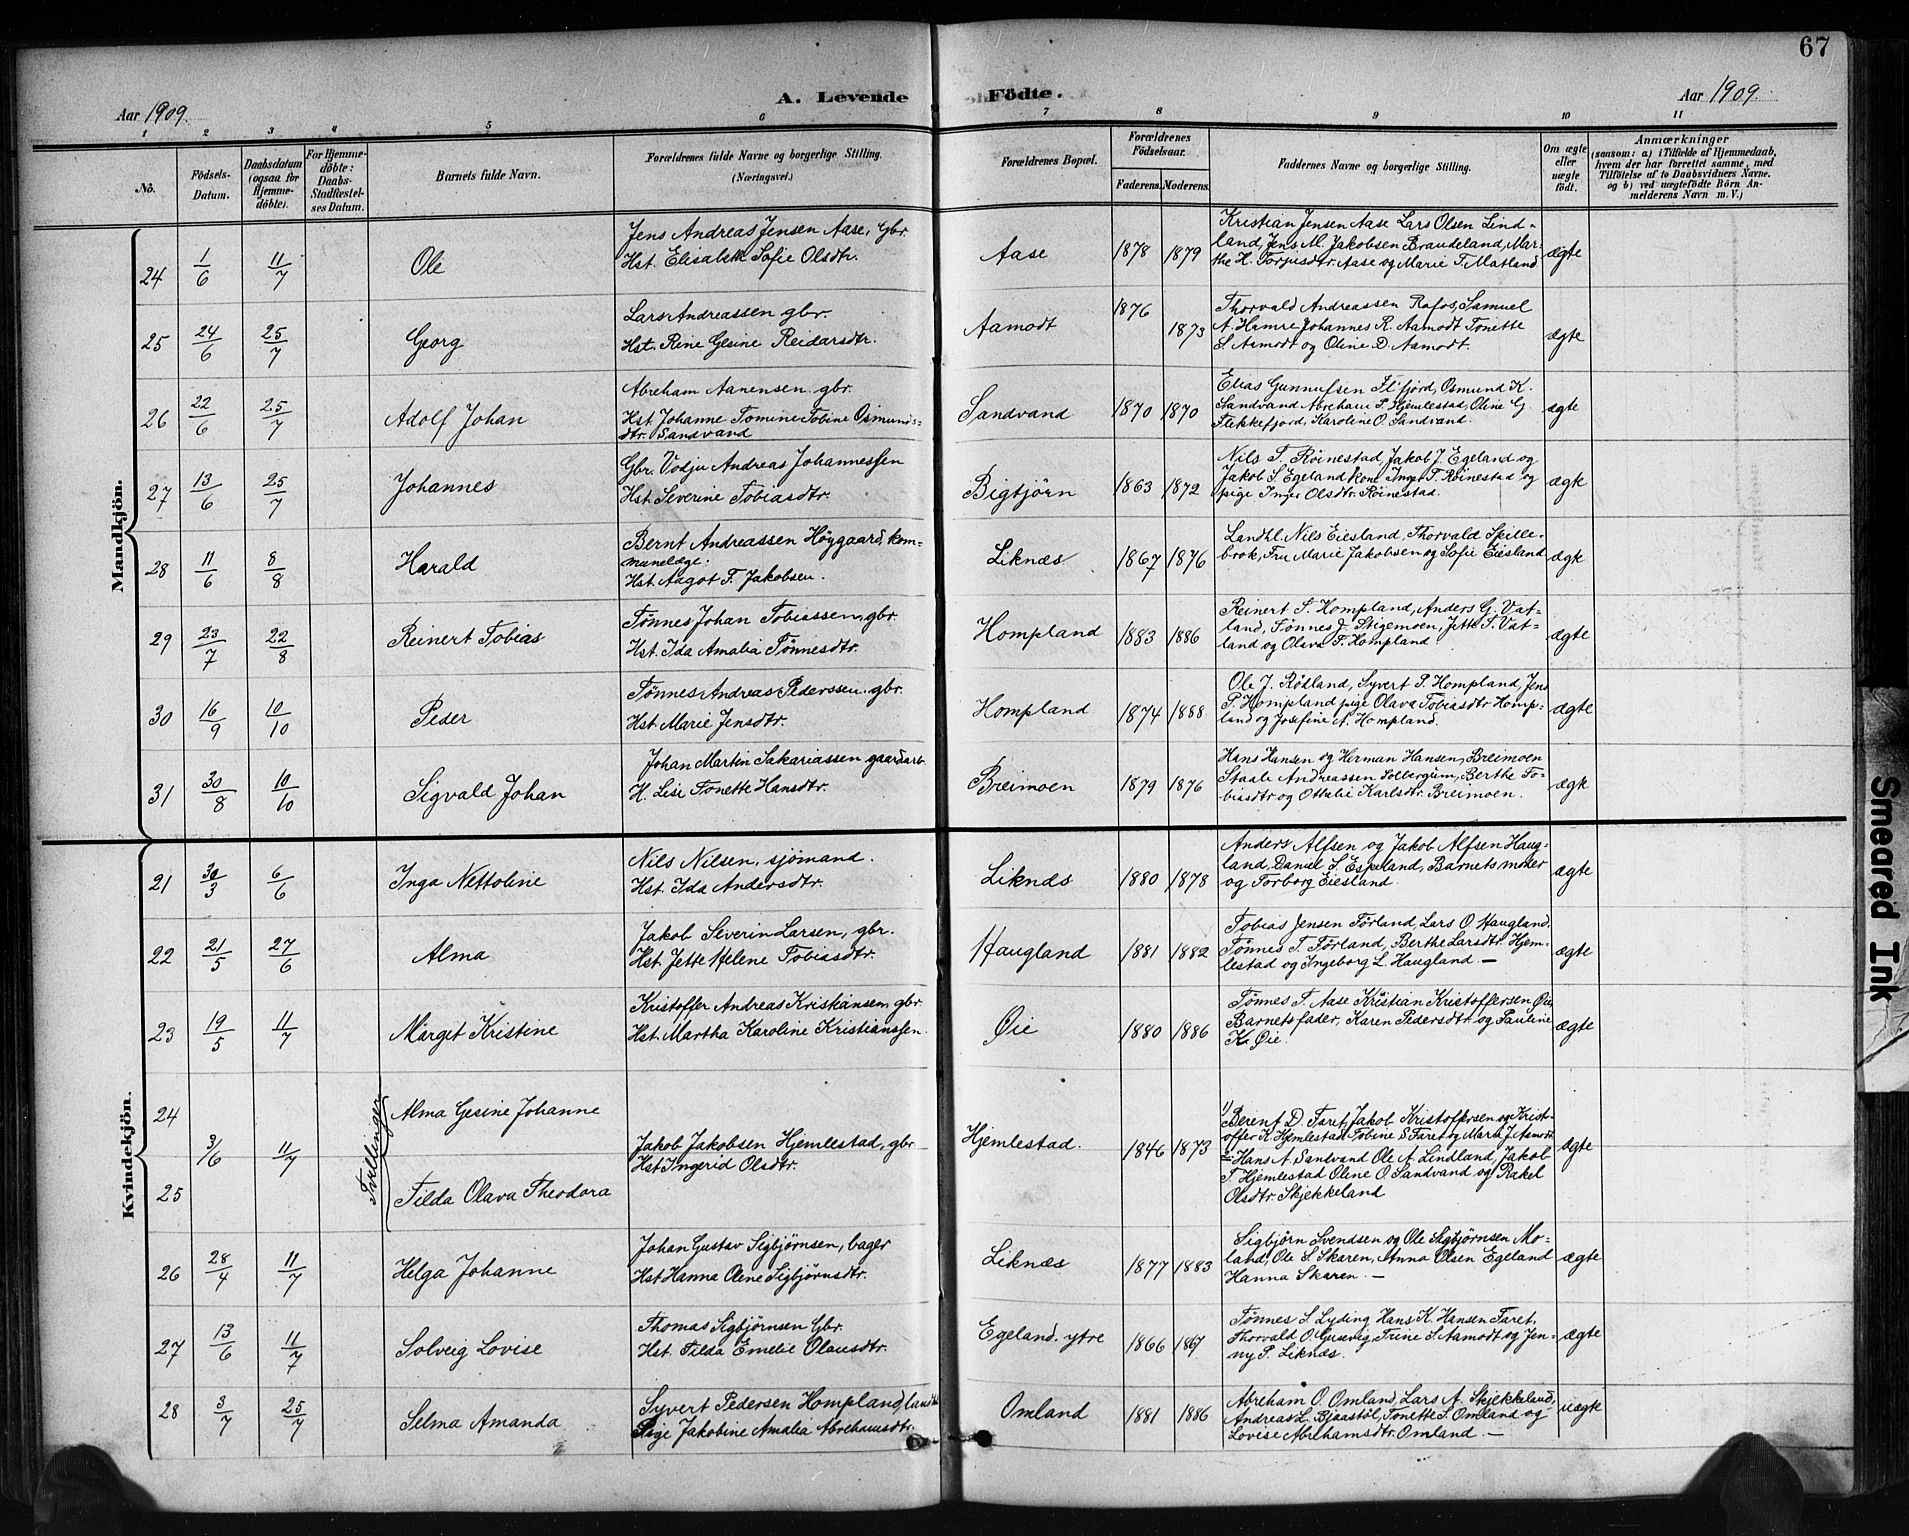 67
Aar 1909.
A. Levende Födte.
Aar 1909.
1 2 3 4 5 6 7 8 9 10 11
No.
Födsels-
Datum.
Daabsdatum
(ogsaa for
Hjemme-
döbte).
For Hjemme-
döbte:
Daabs-
Stadfæstel-
ses Datum.
Barnets fulde Navn.
Forældrenes fulde Navne og borgerlige Stilling.
(Næringsvei.)
Forældrenes Bopæl.
Forældrenes
Födselsaar.
Faderens. Moderens.
Faddernes Navne og borgerlige Stilling.
Om ægte
eller
uægte
födt.
Anmærkninger
(saasom: a) i Tilfælde af Hjemmedaab,
hvem der har forrettet samme, med
Tilföielse af to Daabsvidners Navne.
og b) ved uægtefödte Börn An-
melderens Navn m. V.)
Mandkjön.
24 1/6 11/7 Ole
Jens Andreas Jensen Aase, Gbr.
Hst. Elisabeth Sofie Olsdtr.
Aase 1878 1879
Kristian Jensen Aase Lars Olsen Lind-
land, Jens M. Jakobsen Braudeland, Mar-
the H. Torjusdtr. Aase og Marie T. Matland.
ægte
25 24/6 25/7 Georg
Lars Andreassen gbr.
Hst. Rene Gesine Reidarsdtr.
Aamodt 1876 1873
Thorvald Andreassen Rafos, Samuel
A. Hamre Johannes R. Aamodt Tonette
S. Aamodt og Oline D. Aamodt.
ægte
26 22/6 25/7 Adolf Johan
Abreham Aanensen gbr.
Hst. Johanne Tomine Tobine Osmunds-
dtr. Sandvand
Sandvand 1870 1870
Elias Gunnufsen Flifjord, Osmund K.
Sandvand Abreham P. Hjemlestad, Oline G.
Flekkefjord, Karoline O. Sandvand.
ægte
27 13/6 25/7 Johannes
Gbr. Vodju Andreas Johannessen
Hst. Severine Tobiasdtr.
Bigtjörn 1863 1872
Nils T. Röinestad, Jakob J. Egeland og
Jakob S. Egeland kone Inger T. Röinestad og
pige Inger Olsdtr. Röinestad.
ægte
28 11/6 8/8 Harald
Bernt Andreassen Höygaard, kom-
munelæge.
Hst. Aagot F. Jakobsen.
Liknæs 1867 1876
Landhl. Nils Eiesland, Thorvald Spille-
brok, Fru Marie Jakobsen og Sofie Eiesland
ægte
29 23/7 22/8 Reinert Tobias
Tønnes Johan Tobiassen, gbr.
Hst. Ida Amalia Tønnesdtr.
Hompland 1883 1886
Reinert S. Hompland, Anders G. Vat-
land, Tønnes J. Stigemoen, Jette S. Vat-
land og Olava T. Hompland
ægte
30 16/9 10/10 Peder
Tønnes Andreas Pederssen. gbr.
Hst. Marie Jensdtr.
Hompland 1874 1888
Ole J. Rødland, Syvert P. Hompland, Jens
P. Hompland pige Olava Tobiasdtr Homp-
land og Josefine A. Hompland.
ægte
31 30/8 10/10 Sigvald Johan
Johan Martin Sakariassen gaardarb.
H. Lise Tonette Hansdtr.
Breimoen 1879 1876
Hans Hansen og Herman Hansen, Breimoen
Staale Andreassen Sollergum, Berthe To-
biasdtr og Ottalie Karlsdtr. Breimoen.
ægte
Kvindekjön.
21 30/3 6/6 Inga Nettoline
Nils Nilsen, sjömand.
Hst. Ida Andersdtr.
Liknæs 1880 1878
Anders Alfsen og Jakob Alfsen Haug-
land, Daniel S. Espeland, Barnets moder
og Torborg Eiesland.
ægte
22 21/5 27/6 Alma
Jakob Severin Larsen, gbr.
Hst. Jette Helene Tobiasdtr.
Haugland 1881 1882
Tobias Jensen Förland, Lars O. Haugland.
Tønnes T. Förland, Berthe Larsdtr. Hjem-
lestad og Ingeborg L. Haugland. —
ægte
23 19/5 11/7 Margit Kristine
Kristoffer Andreas Kristiansen, gbr.
Hst. Martha Karoline Kristianssen.
Øie 1880 1886
Tønnes T. Aase Kristian Kristoffersen Øie
Barnets fader, Karen Pedersdtr og Pauline
K. Øie.
ægte
24 Alma Gesine Johanne
Tvillinger
3/6 11/7
Jakob Jakobsen Hjemlestad, gbr.
Hst Ingerid Olsdtr.
Hjemlestad. 1846 1873
1) Berent D. Faret, Jakob Kristoffersen og Krist-
offer K. Hjemlestad Tobine S Faret og Marta J. Aamodt
2) Hans A. Sandvand Ole A. Lindland, Jakob
T. Hjemlestad Oline O. Sandvand og Rakel
Olsdtr. Skjekkeland
ægte
25 Tilda Olava Theodora
26 28/4 11/7 Helga Johanne
Johan Gustav Sigbjørnsen, bager
Hst Hanna Olene Sigbjørnsdtr.
Liknæs 1877 1883
Sigbjörn Svendsen og Ole Sigbjørnsen Mo-
land, Ole S. Skaren, Anna Olsen Egeland
Hanna Skaren. —
ægte
27 13/6 11/7 Solveig Lovise
Thomas Sigbjørnsen Gbr.
Hst. Tilda Emelie Olausdtr.
Egeland. ytre 1866 1867
Tønnes S. Lyding Hans K. Hansen Faret,
Thorvald O. Gusevig, Trine S. Aamodt og Jen-
ny P. Liknæs.
ægte
28 3/7 25/7 Selma Amanda
Syvert Pedersen Hompland,
Pige Jakobine Amalia Abrehamsdtr.
Omland 1881 1886
Abreham O. Omland, Lars A. Skjekkeland,
Andreas L. Bjaastöl, Tonette S. Omland og
Lovise Abrehamsdtr. Omland. —
uægte
Smeared Ink